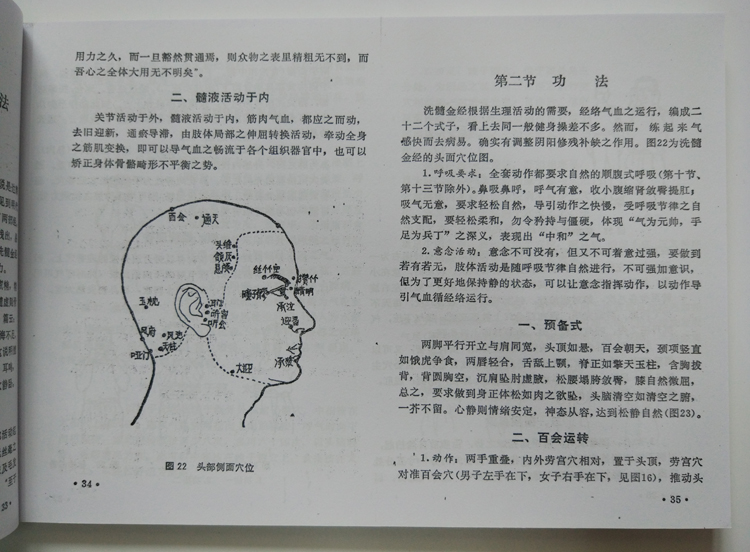 用力之久，而一旦豁然贯通焉，则众物之表里精粗无不到，而
吾心之全体大用无不明矣”。
二、髓液活动于内
关节活动于外，髓液活动于内，筋肉气血，都应之而动，
去旧迎新，通瘀导滞，由肢体局部之伸屈转换活动，牵动全身
之筋肌变换，即可以导气血之畅流于各个组织器官中，也可以
矫正身体骨骼畸形不平衡之势。
百会
通天
头维
颔厌
悬颅
丝竹空
攒竹
瞳子髎
睛明
承泣
迎香
玉枕
耳门
听宫
听会
风府
风池
天柱
哑门
大迎
承浆
图22 头部侧面穴位
·34·
第二节 功 法
洗髓金经根据生理活动的需要，经络气血之运行，编成二
十二个式子，看上去同一般健身操差不多。然而，练起来气
感快而去病易。确实有调整阴阳修残补缺之作用。图22为洗髓
金经的头面穴位图。
1.呼吸要求：全套动作都要求自然的顺腹式呼吸(第十节、
第十三节除外)。鼻吸鼻呼，呼气有意，收小腹缩肾敛臀提肛；
吸气无意，要求轻松自然，导引动作之快慢，受呼吸节律之自
然支配，要轻松柔和，勿令矜持与僵硬，体现“气为元帅，手
足为兵丁”之深义，表现出“中和”之气。
2.意念活动：意念不可没有，但又不可着意过强，要做到
若有若无，肢体活动是随呼吸节律自然进行，不可强加意识，
但为了更好地保持静的状态，可以让意念指挥动作，以动作导
引气血循经络运行。
一、预备式
两脚平行开立与肩同宽，头顶如悬，百会朝天，颈项竖直
如饿虎争食，两唇轻合，舌舐上颚，脊正如擎天玉柱，含胸拔
背，背圆胸空，沉肩坠肘虚腋，松腰塌胯敛臀，膝自然微屈，
总之，要求做到身正体松如肉之欲坠，头脑清空如清空之腑，
一芥不留。心静则情绪安定，神态从容，达到松静自然(图23)。
二、百会运转
1.动作：两手重叠，内外劳宫穴相对，置于头顶，劳宫穴
对准百会穴(男子左手在下，女子右手在下，见图16)，推动头
·35·